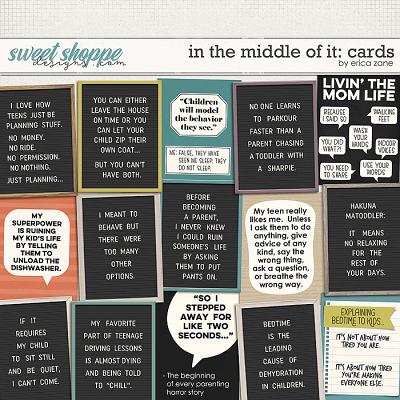 sweet shoppe
designs.com
in the middle of it: cards
by erica zane
I LOVE HOW
TEENS JUST BE
PLANNING STUFF.
NO MONEY.
NO RIDE.
NO PERMISSION.
NO NOTHING.
JUST PLANNING...
YOU CAN EITHER
LEAVE THE HOUSE
ON TIME OR YOU
CAN LET YOUR
CHILD ZIP THEIR
OWN COAT...
BUT YOU CAN'T
HAVE BOTH.
"Children
will model
the behavior
they see."
ME: FALSE, THEY HAVE
SEEN ME SLEEP. THEY
DO NOT SLEEP.
NO ONE LEARNS
TO PARKOUR
FASTER THAN A
PARENT CHASING
A TODDLER WITH
A SHARPIE.
LIVIN' THE
MOM LIFE
BECAUSE
I SAID SO
WALKING
FEET
WASH
YOUR
HANDS
YOU DID
WHAT?!
INDOOR
VOICES
YOU NEED
TO SHARE
USE YOUR
WORDS
MY
SUPERPOWER
IS RUINING
MY KID'S LIFE
BY TELLING
THEM TO
UNLOAD THE
DISHWASHER.
I MEANT TO
BEHAVE BUT
THERE WERE
TOO MANY
OTHER
OPTIONS.
BEFORE
BECOMING
A PARENT,
I NEVER KNEW
I COULD RUIN
SOMEONE'S LIFE
BY ASKING
THEM TO PUT
PANTS ON.
My teen really
likes me. Unless
I ask them to do
anything, give
advice of any
kind, say the
wrong thing,
ask a question,
or breathe the
wrong way.
HAKUNA
MATODDLER:
IT MEANS
NO RELAXING
FOR THE
REST OF
YOUR DAYS.
IF IT
REQUIRES
MY CHILD
TO SIT STILL
AND BE QUIET,
I CAN'T COME.
MY FAVORITE
PART OF TEENAGE
DRIVING LESSONS
IS ALMOST DYING
AND BEING TOLD
TO "CHILL".
"SO I
STEPPED
AWAY FOR
LIKE TWO
SECONDS..."
- The beginning
of every parenting
horror story
BEDTIME
IS THE
LEADING
CAUSE OF
DEHYDRATION
IN CHILDREN.
EXPLAINING
BEDTIME TO KIDS...
IT'S NOT ABOUT HOW
TIRED YOU ARE.
IT'S ABOUT HOW TIRED
YOU'RE MAKING
EVERYONE ELSE.